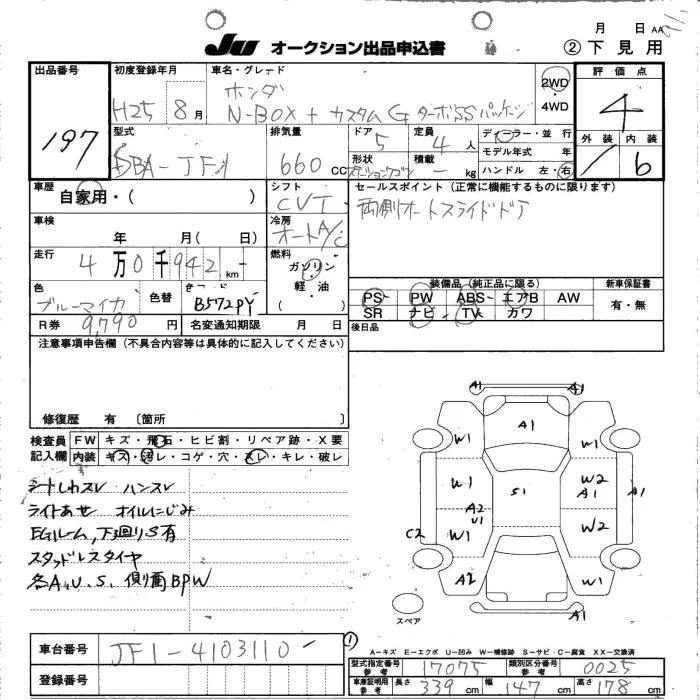 9/1
月 日 AA
JU オークション出品申込書
② 下見用
出品番号
197
初度登録年月
H25 8月
車名・グレード
ホンダ
N-BOX+ カスタム G ターボSSパッケージ
2WD
・4WD
評価点
4
外装 内装
/ 6
型式
DBA-JF1
排気量
660 CC
ドア
5
定員
4 人
形状
ステーションワゴン
積載
- kg
ディーラー・並行
モデル年式 年
ハンドル 左・右
車歴
自家用・( )
シフト
CVT
セールスポイント(正常に機能するものに限ります)
両側オートスライドドア
車検
年 月( 日)
冷房
オートA/C
走行
4万0千942 km
燃料
ガソリン
・軽油・
( )
色
ブルーマイカ
色替
B572PY
装備品(純正品に限る)
PS PW ABS エアB AW
SR ナビ TV カワ
新車保証書
有・無
R券 9,790円
名変通知期限 月 日
後日品
注意事項申告欄(不具合内容等は具体的に記入してください)
修復歴 有〔箇所 〕
検査員
記入欄
FW キズ・飛石・ヒビ割・リペア跡・X要
内装 キズ・汚レ・コゲ・穴・スレ・キレ・破レ
シートしわスレ ハンスレ
ライトあせ オイルにじみ
EGルーム,下廻りS有
スタッドレスタイヤ
各A.U.S. 側面BPW
A1 A1
A1
W1 W1
W1 S1 W2
A1 A1
A2
U1
W1 W2
C2
A2 W1
A1
スペア
車台番号
JF1-4103110
登録番号
①
A-キズ E-エクボ U-凹み W-補修跡 S-サビ C-腐食 XX-交換済
型式指定番号
参考
17075
類別区分番号
参考
0025
車庫証明用
参考
長さ 339cm 幅 147cm 高さ 178cm